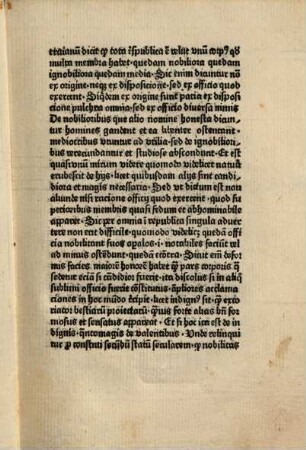 et taianū dicit ꝙ tota r̄spublica ē velut vnū corp⁹ qđ
multa membra habet · quedam nobiliora quedam
ignobiliora quedam media · Sic enim dicuntur nō
ex origine · neqꝫ ex dispositione · sed ex officio quod
exercent · Siqđem ex origine sunt paria ex dispositi
cione pulchra omnia · sed ex officio diuersa nimis
De nobilioribus que alio nomine honesta dicū
tur homines gaudent et ea libenter ostentant ·
mediocribus vtuntur ad vtilia · sed de ignobilio
ribus verecundantur et studiose abscondunt · Et est
quasi vnū mirum videre quomodo videlicet natura
erubescit de hijs · licet quibusdam alijs sint candi
diora et magis necessaria · Sed vt dictum est non
aliunde nisi racione officij quod exercent · quod su
perioribus membris quasi fedum et abhominabile
apparet · Sic per omnia ī republica singula aduer
tere non erit difficile · quomodo videlicꝫ quedā offi
cia nobilitant suos opatos · i · notabiles faciūt vel
ad minus ostēdunt · quedā ecōtra · Sicut em̄ defor
mis facies maiorē honorē habet ꝙ̄ pars corporis q̄
sedent ecia si candidior fuerit · ita discolus si in aliq̊
sublimi officio fuerit cōstitutus · āpliores acclama
ciones in hoc mūdo recipit · licet indign⁹ sit · ꝙ̄ exte
riorbus bestiarū proiectatū · ꝙ̄uis forte alias bn̄ for
mosus et sensatus appareat · Et si hoc ita est de in
dignis · q̄ntomagis de valentibus · Unde relinqui
tur ꝙ constituti secūdum statū secularem · ꝙ nobilitas